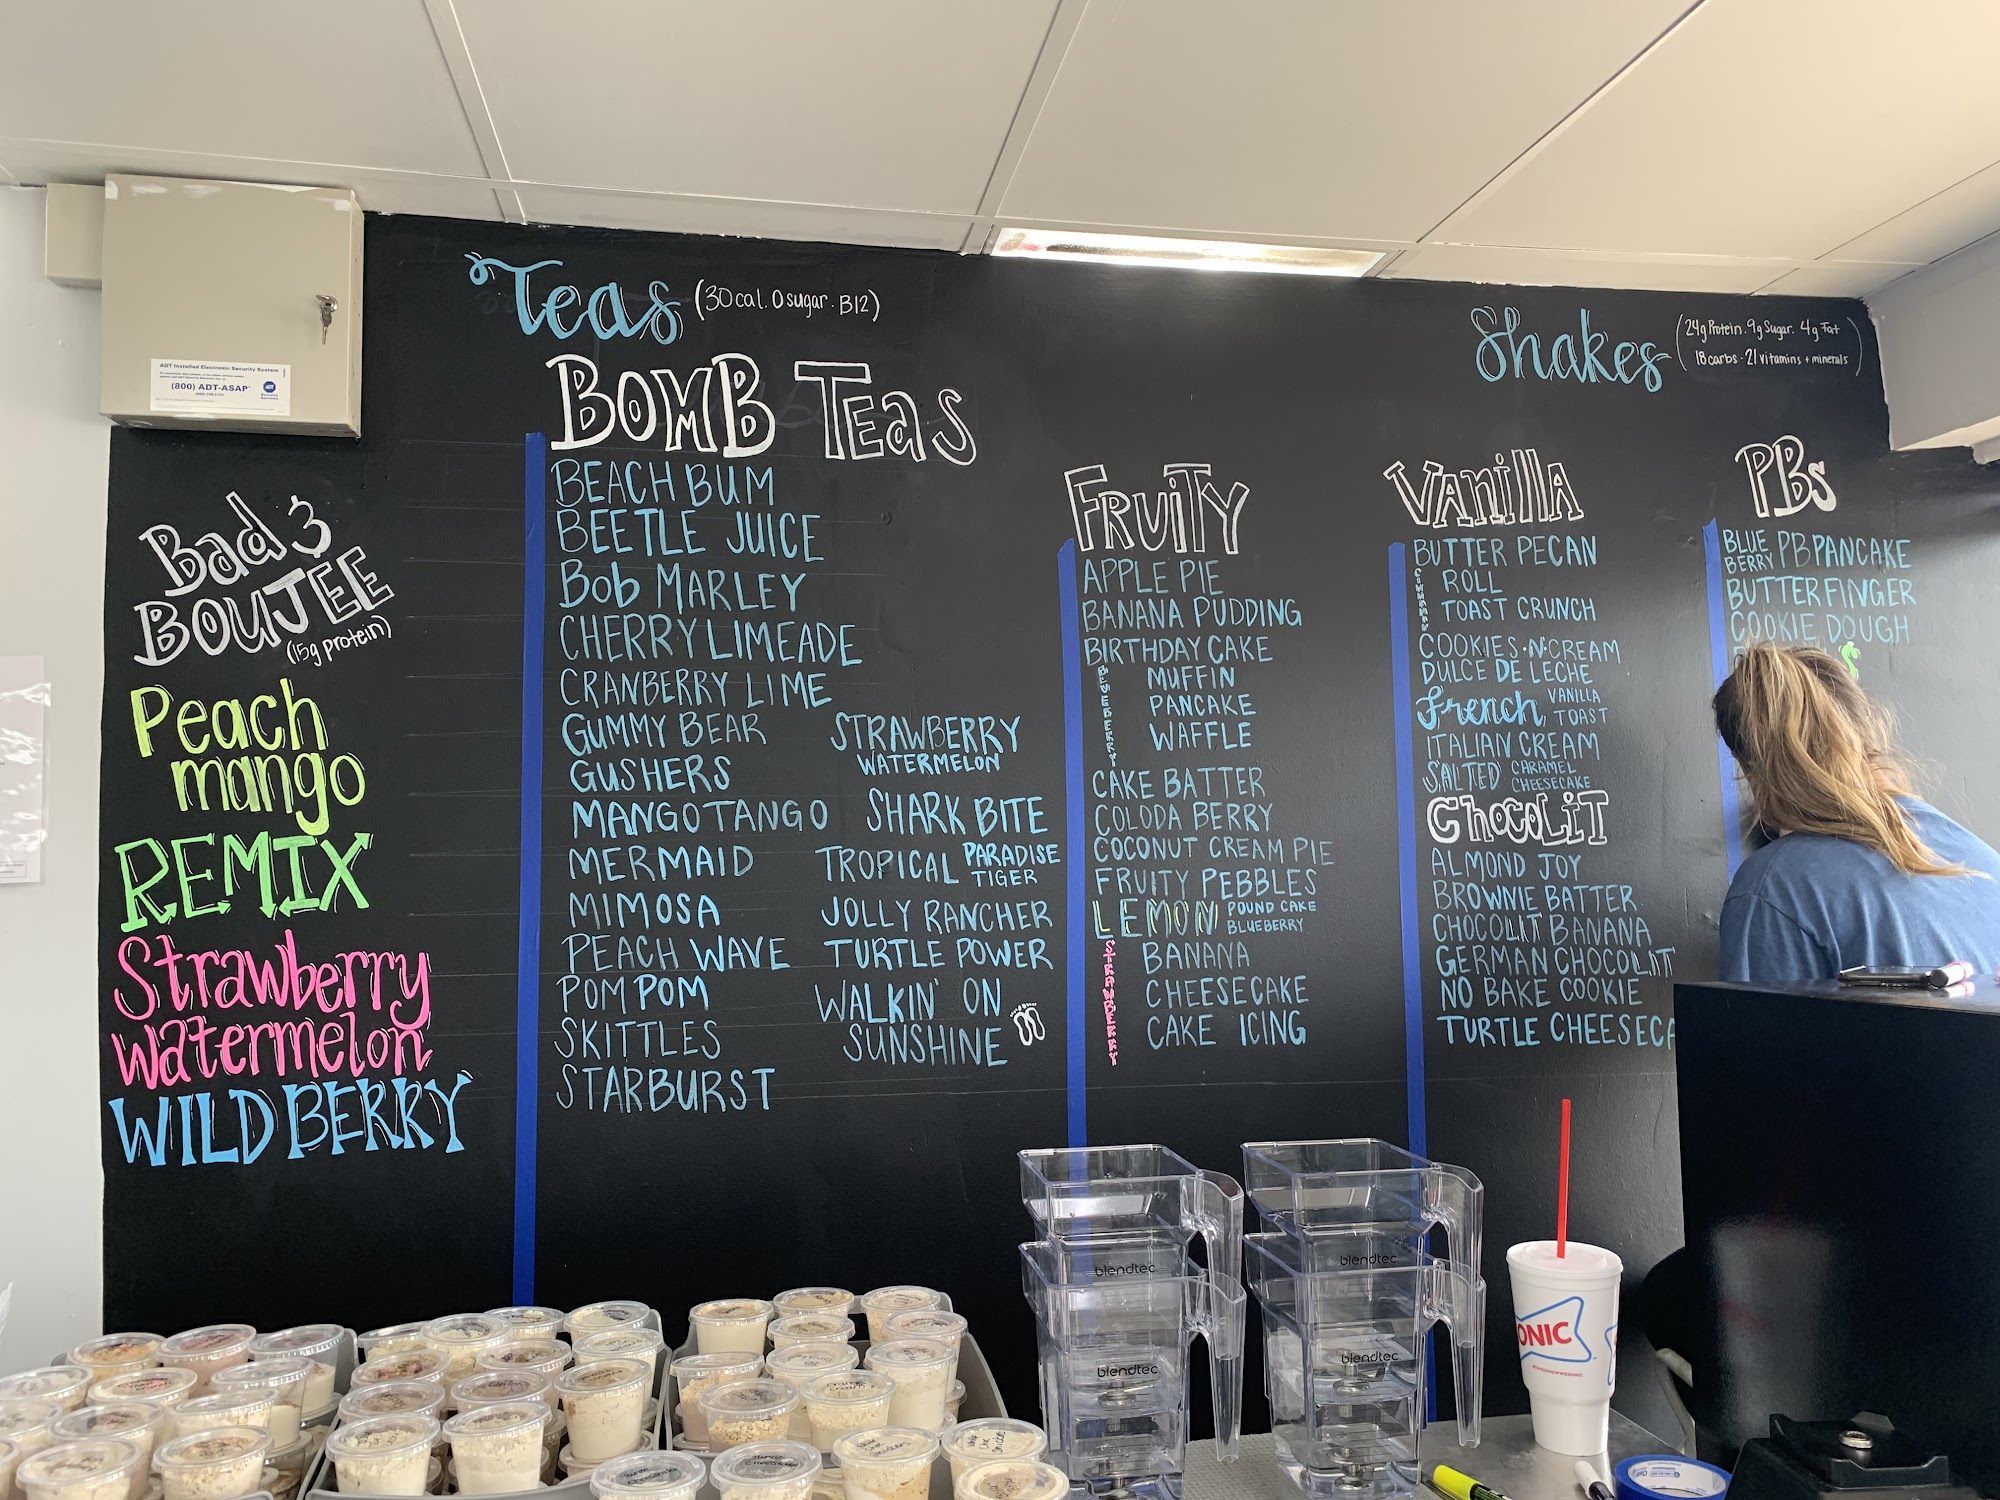 Teas (30cal. 0 sugar. B12)
Shakes (24g Protein. 9g Sugar. 4g Fat
18 carbs. 21 vitamins + minerals)
ADT Installed Electronic Security System
(800) ADT-ASAP
ADT
Security
Services
Bad &
BOUJEE
(15g protein)
Peach
mango
REMIX
Strawberry
watermelon
WILD BERRY
BOMB TEAS
BEACH BUM
BEETLE JUICE
Bob MARLEY
CHERRY LIMEADE
CRANBERRY LIME
GUMMY BEAR
GUSHERS
MANGO TANGO
MERMAID
MIMOSA
PEACH WAVE
POM POM
SKITTLES
STARBURST
STRAWBERRY
WATERMELON
SHARK BITE
TROPICAL PARADISE
TIGER
JOLLY RANCHER
TURTLE POWER
WALKIN' ON
SUNSHINE
FRUITY
APPLE PIE
BANANA PUDDING
BIRTHDAY CAKE
BLUEBERRY
MUFFIN
PANCAKE
WAFFLE
CAKE BATTER
COLODA BERRY
COCONUT CREAM PIE
FRUITY PEBBLES
LEMON POUND CAKE
BLUEBERRY
STRAWBERRY
BANANA
CHEESECAKE
CAKE ICING
VANILLA
BUTTER PECAN
CINNAMON
ROLL
TOAST CRUNCH
COOKIES-N-CREAM
DULCE DE LECHE
French VANILLA
TOAST
ITALIAN CREAM
SALTED CARAMEL
CHEESECAKE
CHOCOLIT
ALMOND JOY
BROWNIE BATTER
CHOCOLIT BANANA
GERMAN CHOCOLIT
NO BAKE COOKIE
TURTLE CHEESECA
PBs
BLUE
BERRY PB PANCAKE
BUTTERFINGER
COOKIE DOUGH
blendtec
blendtec
blendtec
blendtec
ONIC